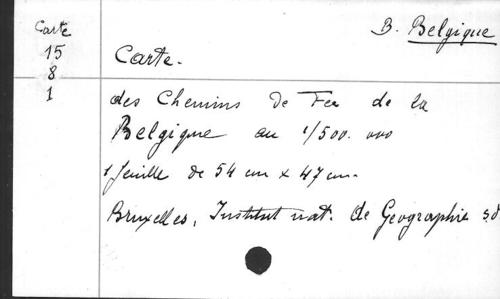 Carte
15
8
1
B. Belgique
Carte.
des Chemins de Fer de la
Belgique au 1/500.000
1 feuille de 54 cm x 47 cm.
Bruxelles, Institut nat. de Geographie s.d